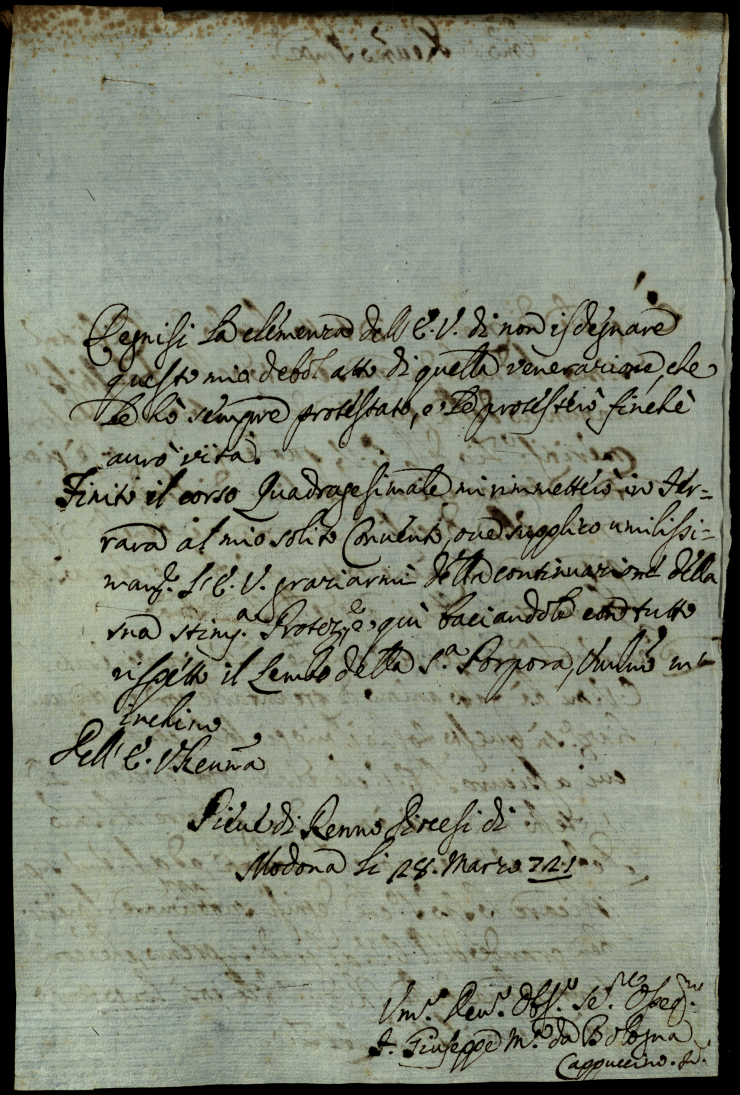 Degnisi La clemenza dell'E. V. di non isdegnare
questo mio debol atto di quella venerazione, che
Le hò sempre protestato, e Le protesterò finchè
aurò vita.
Finito il corso Quadragesimale mi rimmetterò in Fer-
rara al mio solito Convento, oue supplico umilissi-
mam.e L'E. V. graziarmi della continuazione della
sua stim.a Protez.e, e quì baciandole con tutto
rispetto il Lembo della S.a Porpora, Umil.e m'
inchino
Dell'E. V. Reu.ma
Pieue di Renno Diocesi di
Modona Li 28. Marzo 721
Um.o Deu.o Obl.o Se.re Osseq.mo
F. Giuseppe M.a da Bologna
Cappuccino.